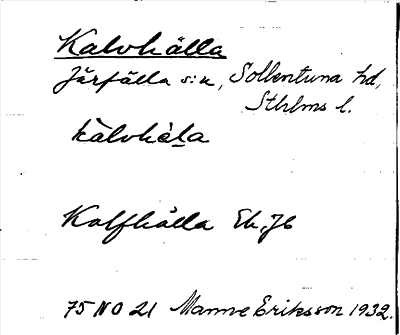 Kalvhälla
Järfälla s:n, Sollentuna hd,
Sthlms l.
kalvhäla
Kalfhälla Ek, Jb
75 NO 21 Manne Eriksson 1932.